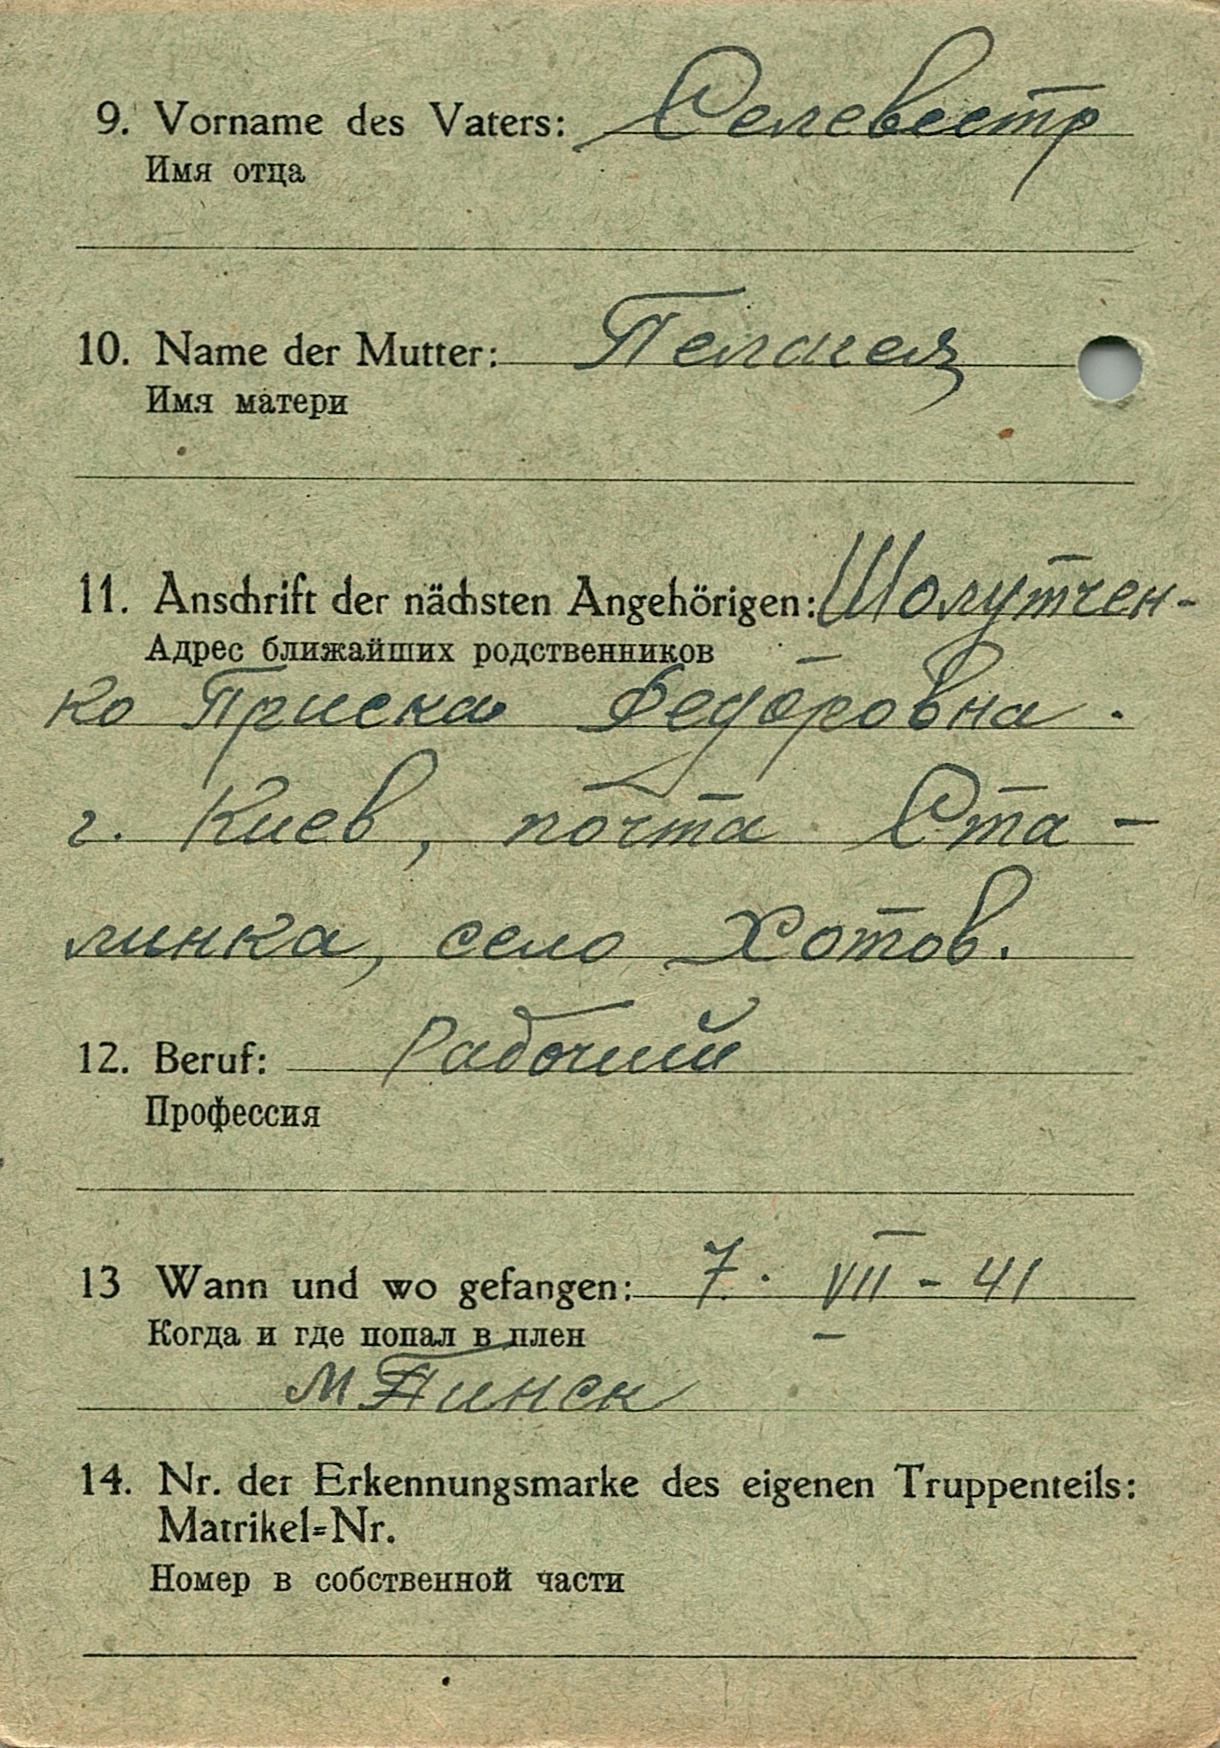 9. Vorname des Vaters: Селевестр
Имя отца
10. Name der Mutter: Пелагея
Имя матери
11. Anschrift der nächsten Angehörigen: Шолутчен-
Адрес ближайших родственников
ко Приска Федоровна.
г. Киев, почта Ста-
линка, село Хотов.
12. Beruf: Рабочий
Профессия
13 Wann und wo gefangen: 7. VII - 41
Когда и где попал в плен
м Пинск
14. Nr. der Erkennungsmarke des eigenen Truppenteils:
Matrikel=Nr.
Номер в собственной части